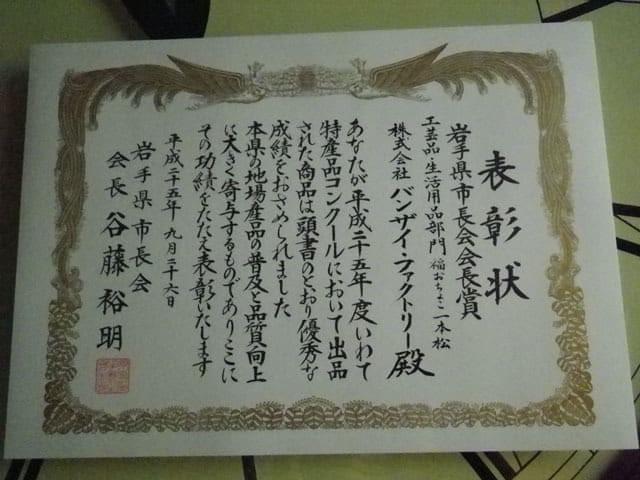 表彰状
岩手県市長会会長賞
工芸品・生活用品部門 稲おちょこ一本松
株式会社 バンザイ・ファクトリー殿
あなたが平成二十五年度いわて
特産品コンクールにおいて出品
された商品は頭書のとおり優秀な
成績をおさめられました
本県の地場産品の普及と品質向上
に大きく寄与するものでありここに
その功績をたたえ表彰いたします
平成二十五年 九月二十六日
岩手県市長会
会長 谷藤裕明